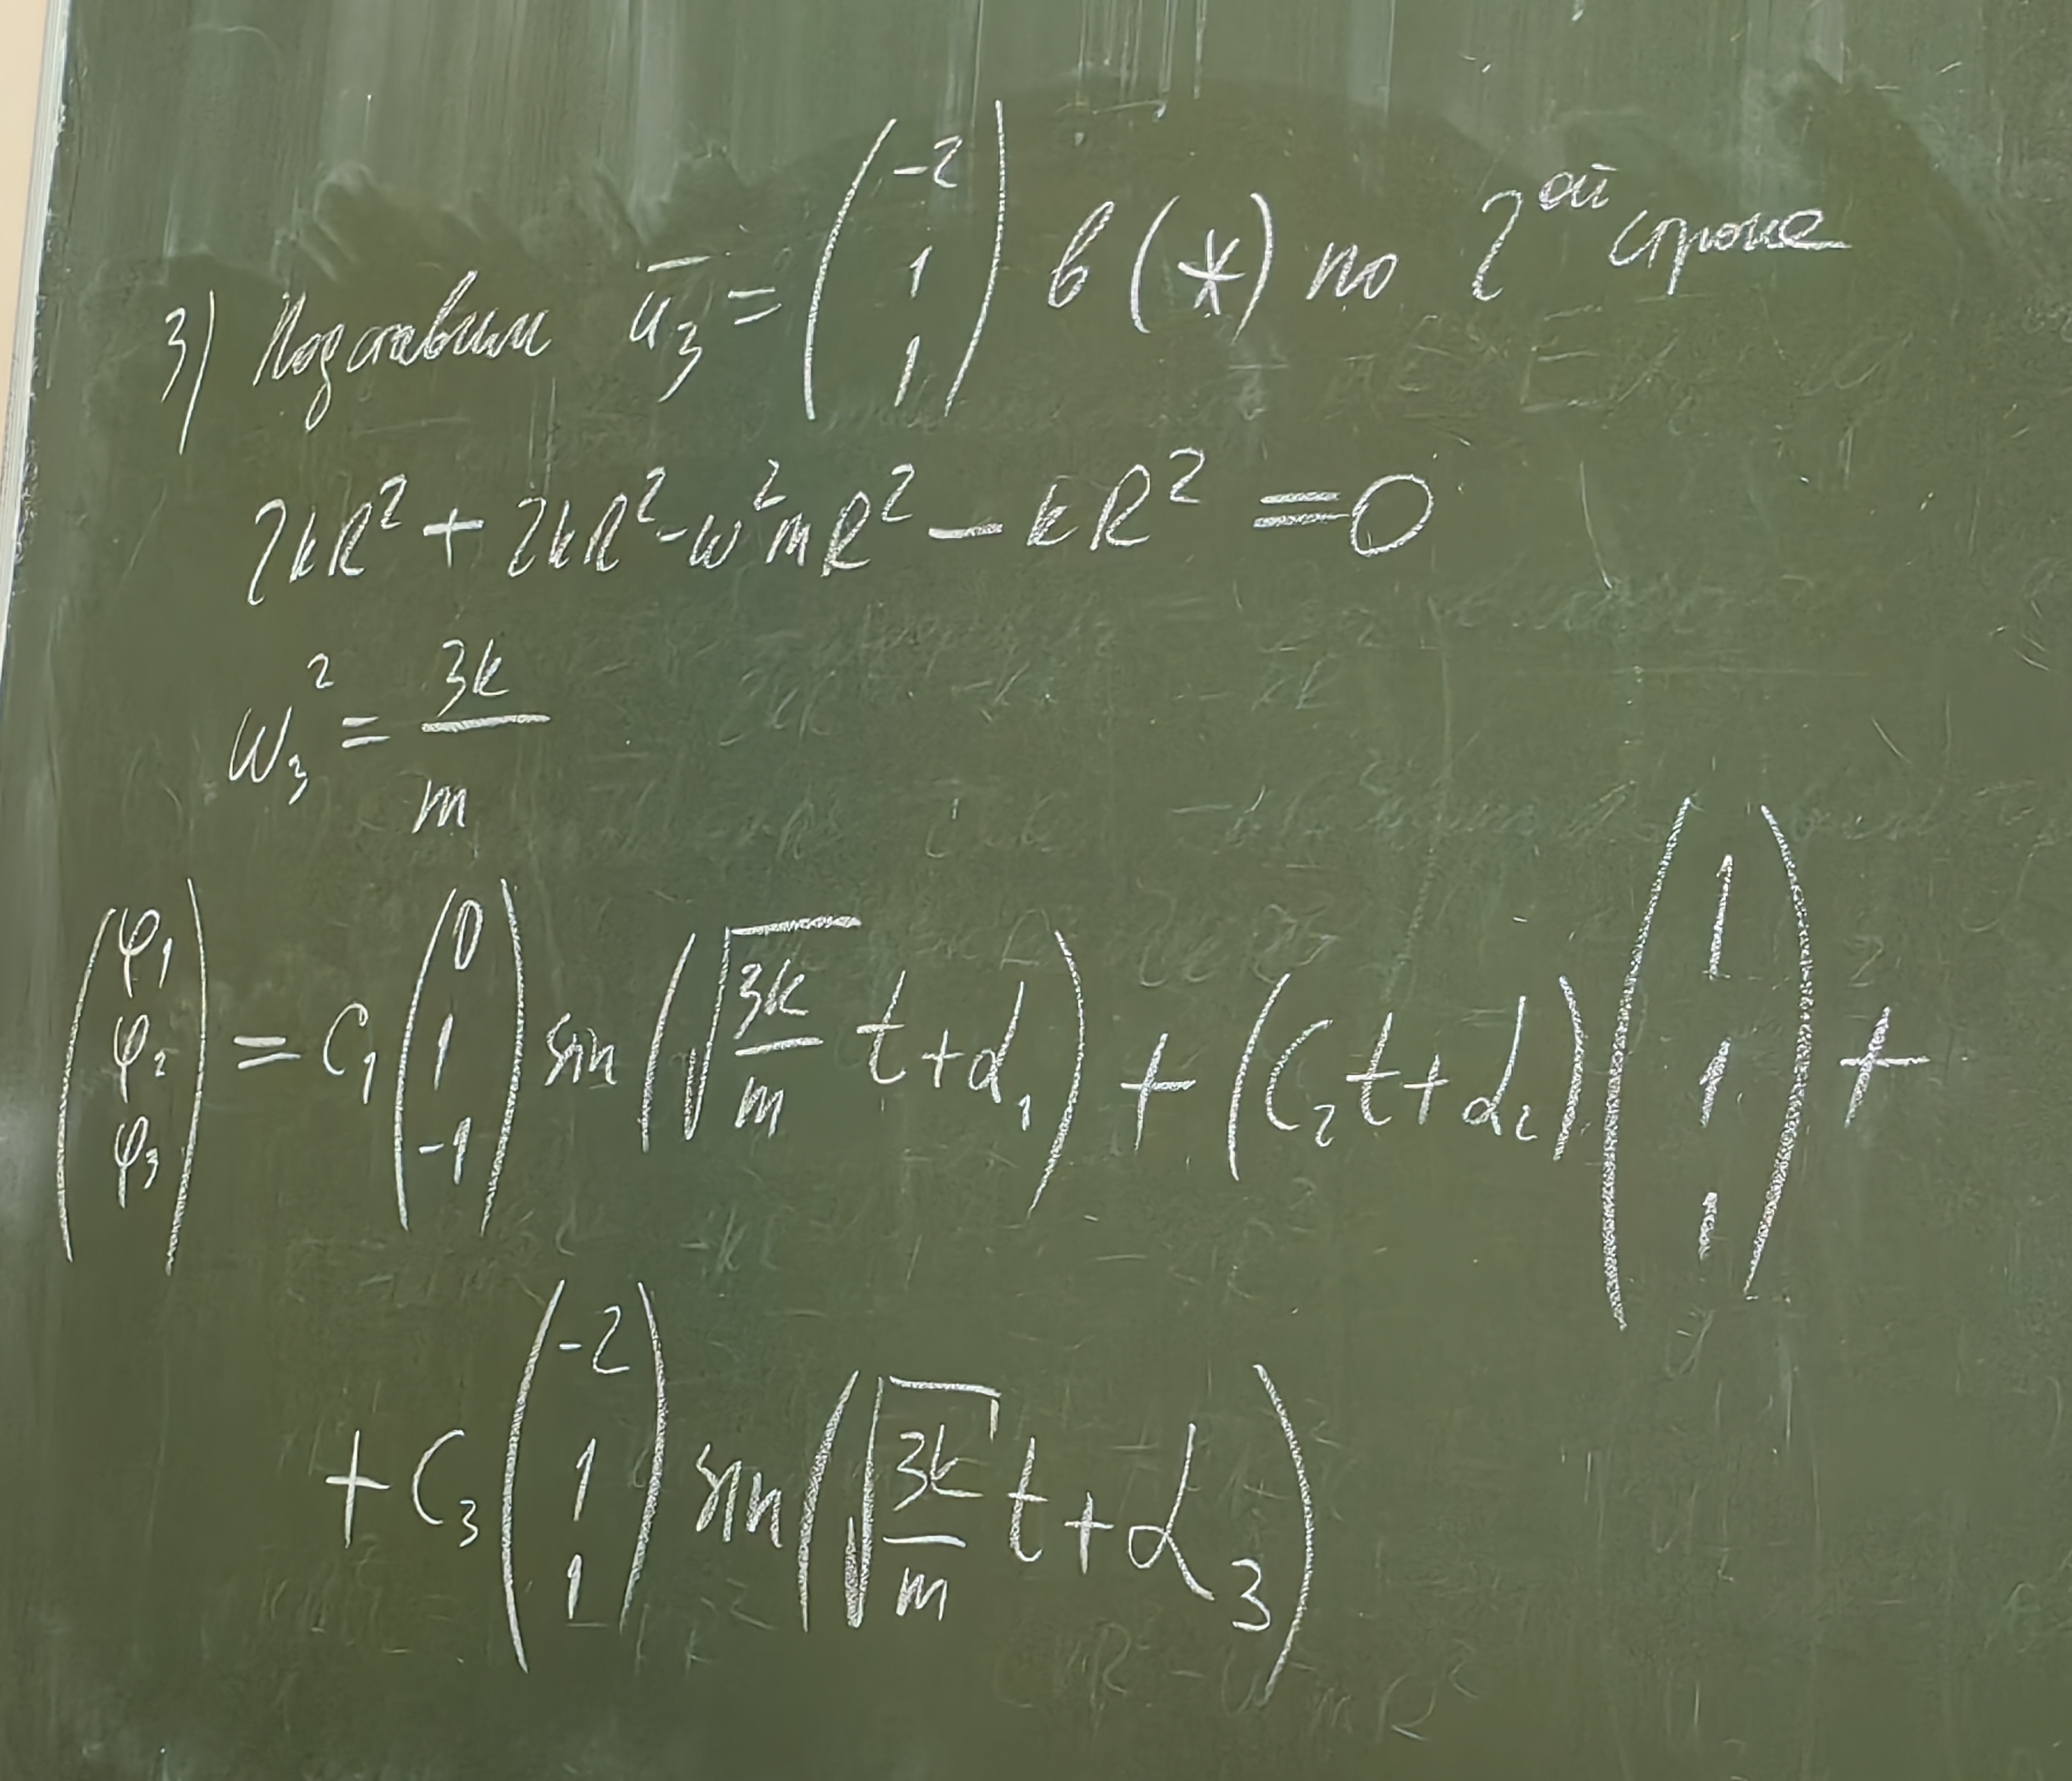 3) Подставим ū₃ = (-2 1 1) в (*) по 2ой строке
2kR² + 2kR² - ω²mR² - kR² = 0
ω₃² = 3k/m
(φ₁ φ₂ φ₃) = C₁ (0 1 -1) sin(√(3k/m) t + α₁) + (C₂t + α₂) (1 1 1) +
+ C₃ (-2 1 1) sin(√(3k/m) t + α₃)